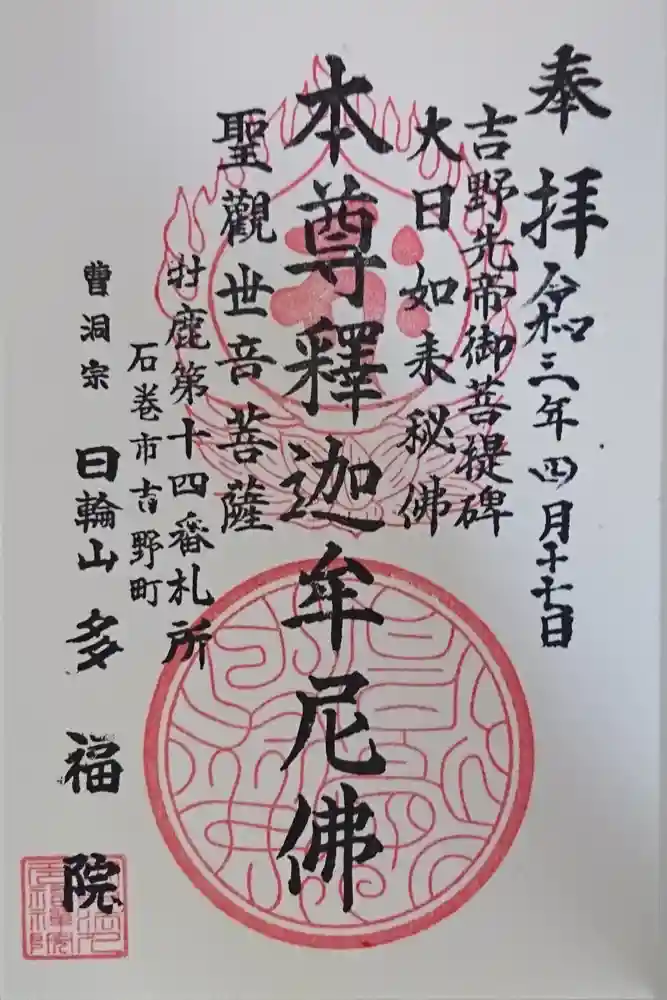 奉拝 令和三年四月十七日
吉野先帝御菩提碑
大日如来秘佛
本尊釋迦牟尼佛
聖觀世音菩薩
牡鹿第十四番札所
石巻市吉野町
曹洞宗 日輪山 多福院